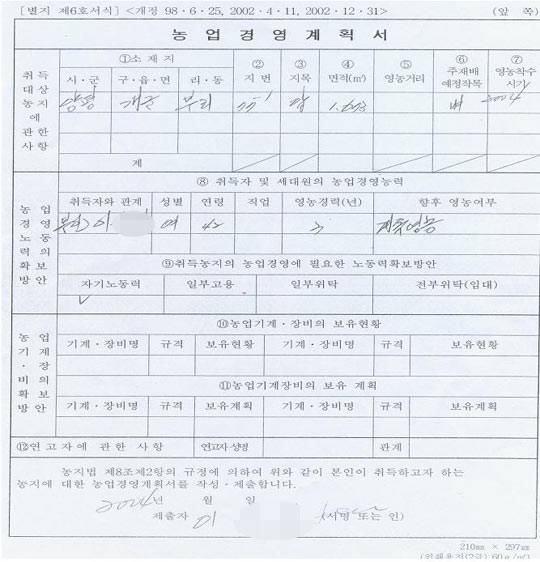 [별지 제6호서식] <개정 98·6·25, 2002·4·11, 2002·12·31> (앞 쪽)
농 업 경 영 계 획 서
취득 대상 농지 에 관한 사항
①소 재 지 ② 지 번 ③ 지목 ④ 면적(㎡) ⑤ 영농거리 ⑥ 주재배 예정작목 ⑦ 영농착수 시기
시·군 구·읍·면 리·동
양평 개군 부리 전 벼
계
농 업 경 영 노 동 력 의 확 보 방 안
⑧ 취득자 및 세대원의 농업경영능력
취득자와 관계 성별 연령 직업 영농경력(년) 향후 영농여부
이 여 42 3 계속영농
⑨취득농지의 농업경영에 필요한 노동력확보방안
자기노동력 일부고용 일부위탁 전부위탁(임대)
✓
농 업 기 계 · 장 비 의 확 보 방 안
⑩농업기계·장비의 보유현황
기계·장비명 규격 보유현황 기계·장비명 규격 보유현황
⑪농업기계장비의 보유 계획
기계·장비명 규격 보유계획 기계·장비명 규격 보유계획
⑫연고자에 관한 사항 연고자·성명 관계
농지법 제8조제2항의 규정에 의하여 위와 같이 본인이 취득하고자 하는
농지에 대한 농업경영계획서를 작성·제출합니다.
년 월 일
제출자 이 (서명 또는 인)
210㎜ × 297㎜